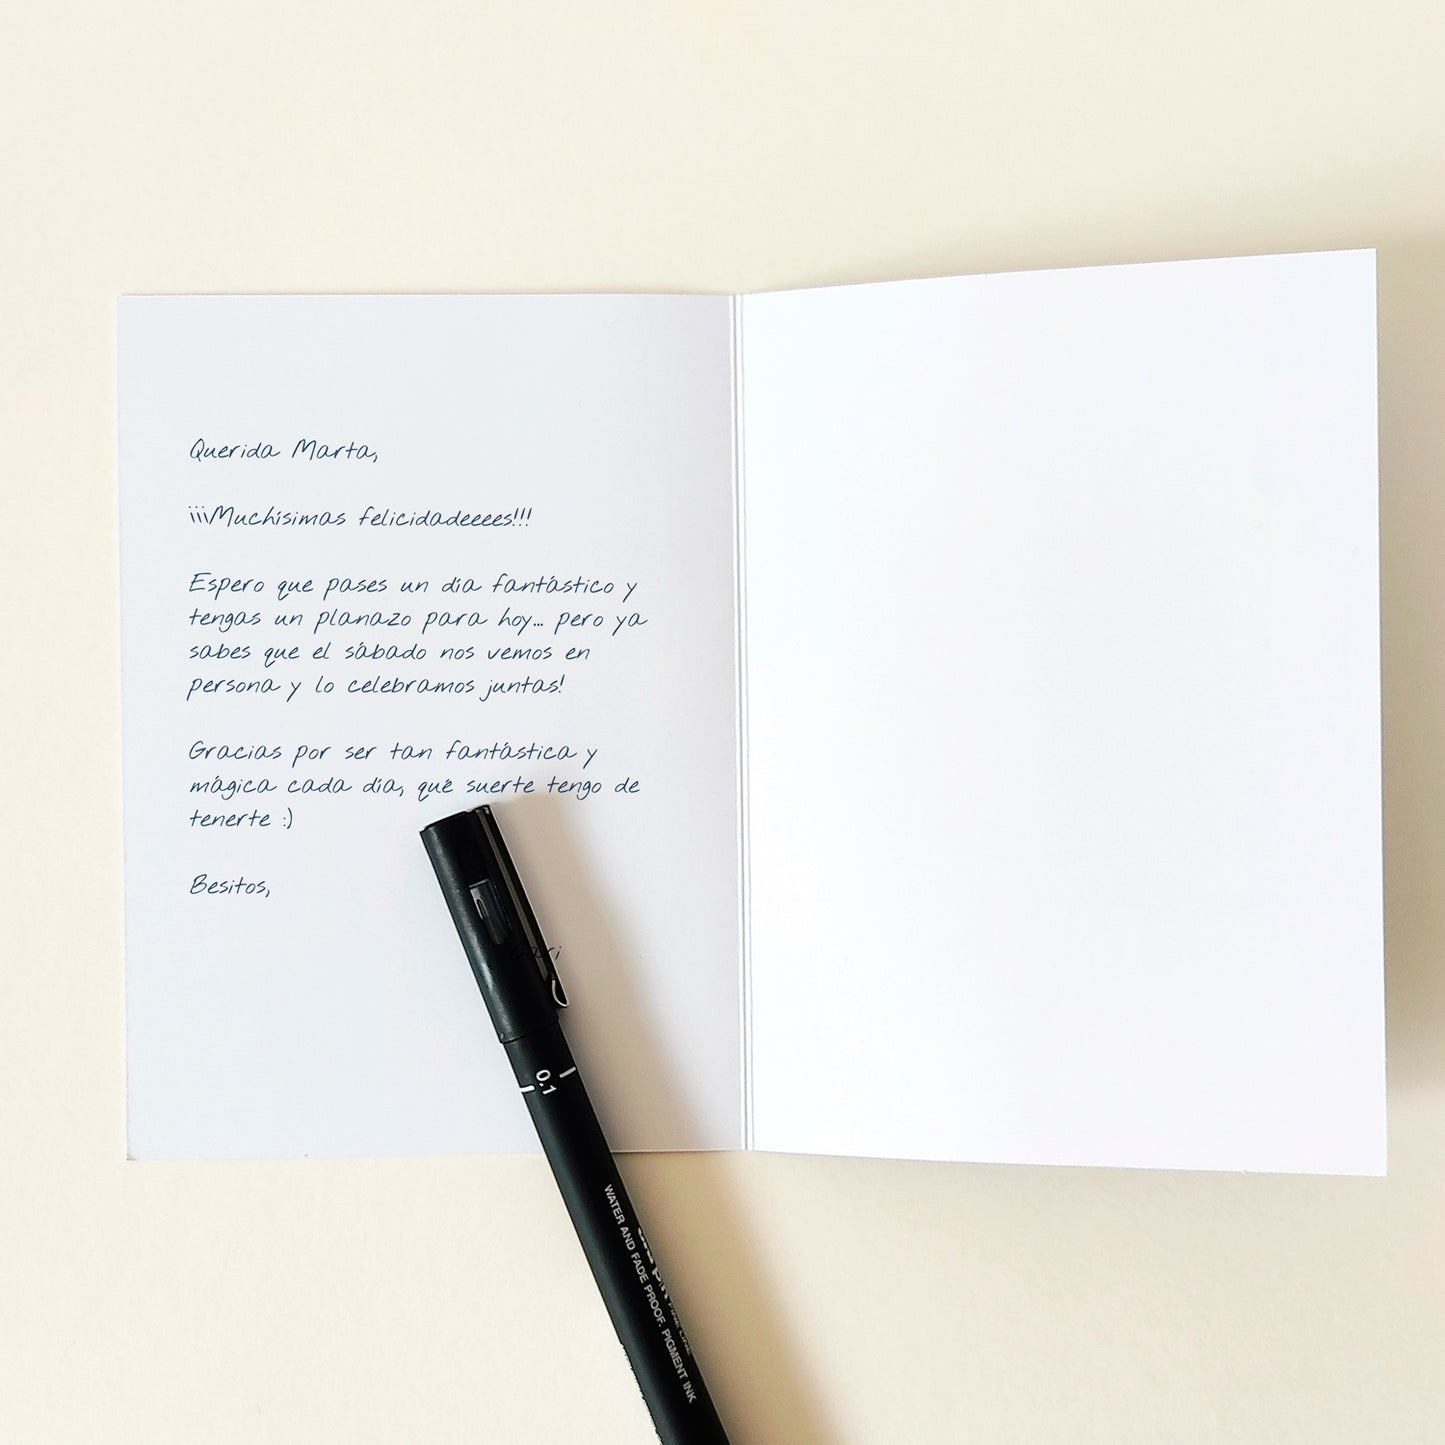 Querida Marta,
¡¡¡Muchísimas felicidadeeees!!!
Espero que pases un día fantástico y
tengas un planazo para hoy... pero ya
sabes que el sábado nos vemos en
persona y lo celebramos juntas!
Gracias por ser tan fantástica y
mágica cada día, qué suerte tengo de
tenerte :)
Besitos,
0.1
WATER AND FADE PROOF. PIGMENT INK